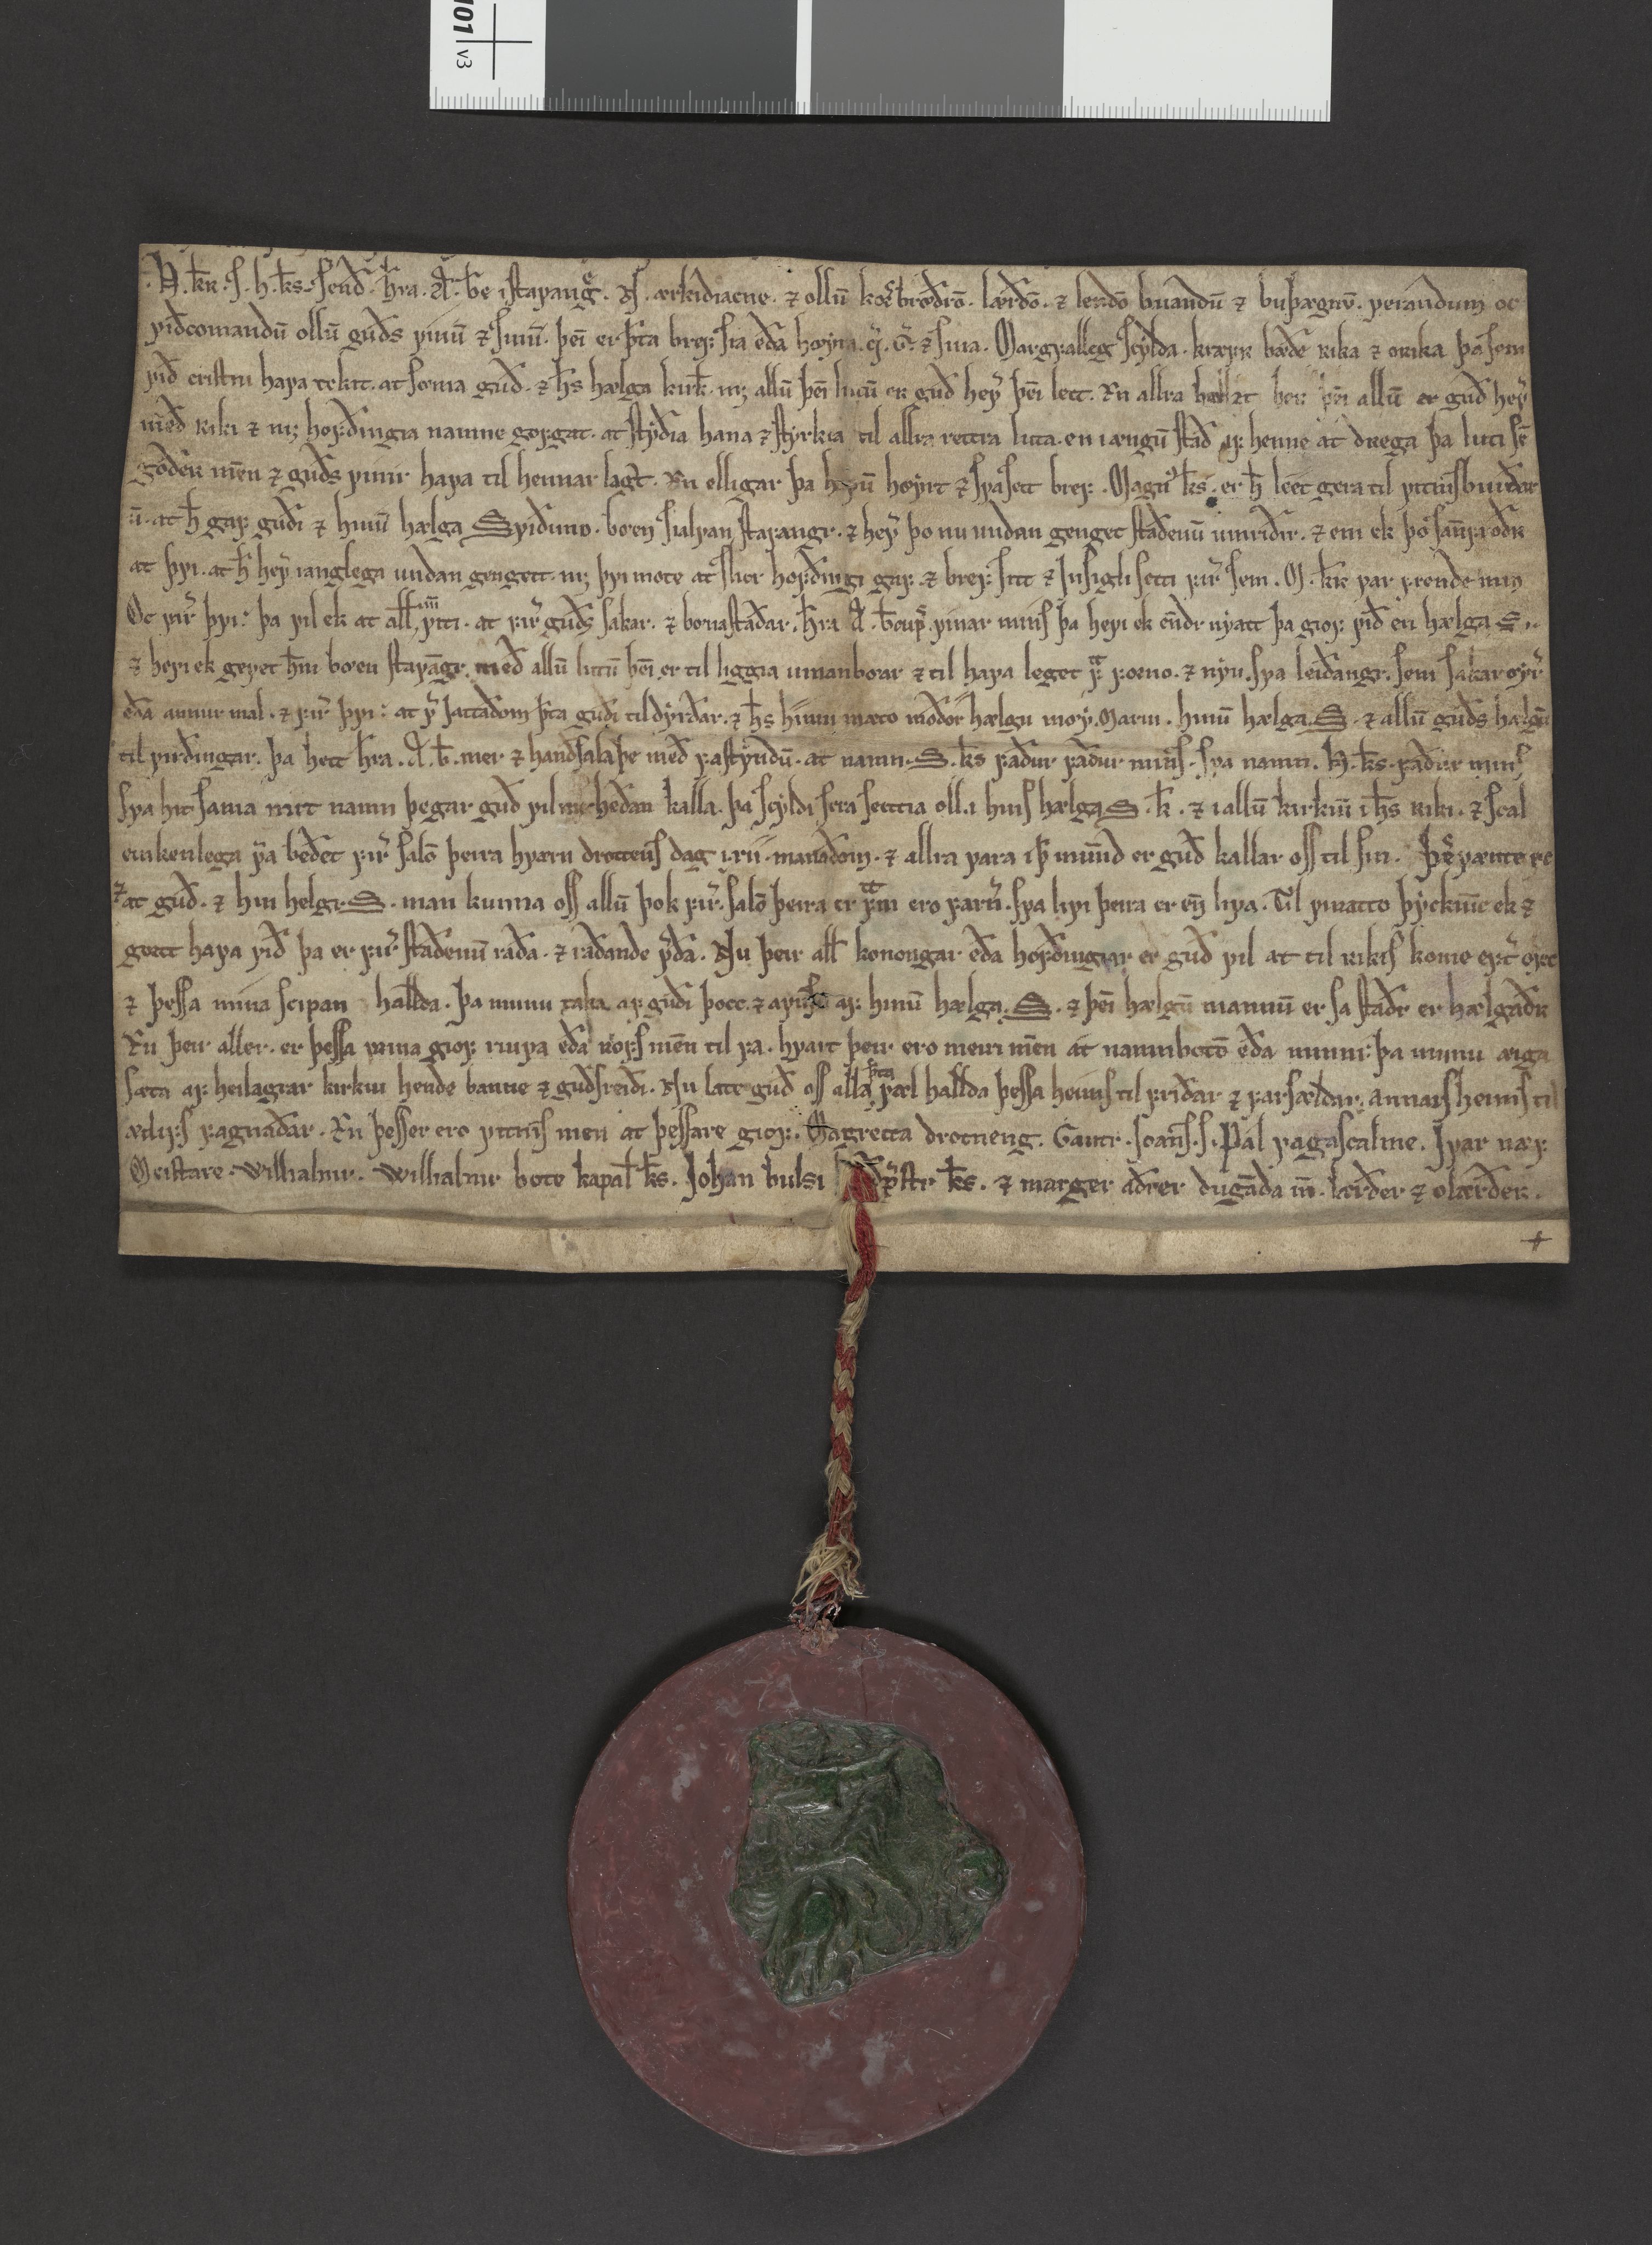 101 v3
.H. k̅r. ſ. h. k̅s. ſend̅. h̅ra. A̅. b̅e iſtaꝩang̅. N. ærkidiacne. ⁊ ollū korſbrœdrō. lærdō. ⁊ lendō buandū ⁊ buþægnū. ꝩerandum oc
ꝩiðcomandū ollū guðs ꝩinū ⁊ ſinū. þēi er þ̅ta breꝼ ſia eða hœyra. q̅. G̅. ⁊ ſina. Margꝼalleg ſcylda. kræꝼr bæde rika ⁊ orika þa ſem
ꝩið criſtni haꝩa tekit. at ſœma guð. ⁊ h̅s hælga kirk̅. mꝫ allū þēi lutū er guð heꝩ̅ þēi lett. En allra hællzt ber þēi allū er guð heꝩ̅
með riki ⁊ mꝫ hoꝼðingia namne goꝼgat. at ſtyðia hana ⁊ ſtyrkia til allra rettra luta. en i ængū ſtað aꝼ henne at draga þa luti ſē
goder mēn ⁊ guðs ꝩinir haꝩa til hennar lagt. En elligar þa hoꝩū hœyrt ⁊ ſꝩa ſett breꝼ. Magn̅ k̅s. er h̅ leet gera til ꝩitniſburðar
ū. at h̅ gaꝼ guði ⁊ hinū hælga Sꝩiðuno. bœen ſialꝼan ſtaꝩangr. ⁊ heꝩ̅ þo nu undan genget ſtaðenū umriðir. ⁊ em ek þo ſan̅ꝼroðr
at þꝩi. at h̅ heꝩ̅ ranglega undan gengett. mꝫ þꝩi mote at ſlicr hoꝼðingi gaꝼ ⁊ breꝼ ſitt ⁊ Inſigli ſetti ꝼir̅ ſem. M. k̅r ꝩar ꝼrende min
Oc ꝼir̅ þꝩi. þa ꝩil ek at all̅ ꝩiti. at ꝼir̅ guðs ſakar. ⁊ bœnaſtaðar. h̅ra A̅. b̅cups. ꝩinar mins þa heꝩi ek ēndr nyatt þa gioꝼ ꝩið en hælga S.
⁊ heꝩi ek geꝩet h̅m bœen ſtaꝩāgr. með allū lutū þēi er til liggia umanbœar ⁊ til haꝩa leget ꝼ̅ ꝼorno. ⁊ nyu. ſꝩa leiðangr. ſem ſakar œyr̅
eða annur mal. ⁊ ꝼir̅ þꝩi. at ꝩ̅ Jattaðom þ̅ta guði til dyrðar. ⁊ h̅s hinni mæto moðor hælgu mœy Mariu. hinū hælga. S. ⁊ allū guðs hælgū
til ꝩirðingar. þa hett h̅ra. A̅. b̅. mer ⁊ handſalaþe með ꝼaſtyndū. at namn. S. k̅s ꝼaður ꝼaður mins. ſꝩa namn. H. k̅s. ꝼaður mins
ſꝩa hit ſama mit namn þegar guð ꝩil mic heðan kalla. þa ſcyldi ſera ſetttia oll. i hins hælga S. k̅. ⁊ i allū kirkiū i h̅s riki. ⁊ ſcal
einkenlega ꝩ̅a beðet ꝼir̅ ſalō þeira hꝩern drottenſ dag i xii. manaðom. ⁊ allra ꝩara i þ̅ mund er guð kallar oſſ til ſin.
at guð. ⁊ hin helgi S. man kunna oſſ allū þok ꝼir̅ ſalō þeira er ero ꝼarn̅. ſꝩa liꝩi þeira er en̅ liꝩa. Til ꝩinatto þyckiūc ek ⁊
gœtt haꝩa ꝩið þa er ꝼir̅ ſtaðenū raða. ⁊ raðande ꝩ̅ða. Nu þeir all̅ konongar eða hoꝼðingiar er guð ꝩil at til rikis kome
⁊ þeſſa mina ſcipan hallda. þa munu taka aꝼ guði þocc. ⁊ aꝼ hinū hælga. S. ⁊ þēi hælgū mannū er ſa ſtaðr er hælgaðr
En þeir aller. er þeſſa mina gioꝼ riuꝩa eða mēn til ꝼa. hꝩart þeir ero meiri mēn at namnbotō eða minni. þa munu æiga
ſæta aꝼ heilagrar kirkiu hende banne ⁊ guðſreiði. Nu late guð oſſ alla þ̅ta ꝩæl hallda þeſſa heims til ꝼriðar ⁊ ꝼarſældar. annars heims til
æiliꝼs ꝼagnaðar. En þeſſer ero ꝩitnis men at þeſſare gioꝼ. Magretta drotneng. Gautr. Joans. ſ. Pal ꝩagaſcalme. Jꝩar næꝼ.
Meiſtare. Wilhialmr. Wilhialmr bote kapal̅ k̅s. Johan bulsi k̅s. ⁊ marger aðrer dugāda m̅. lærder ⁊ olærder.